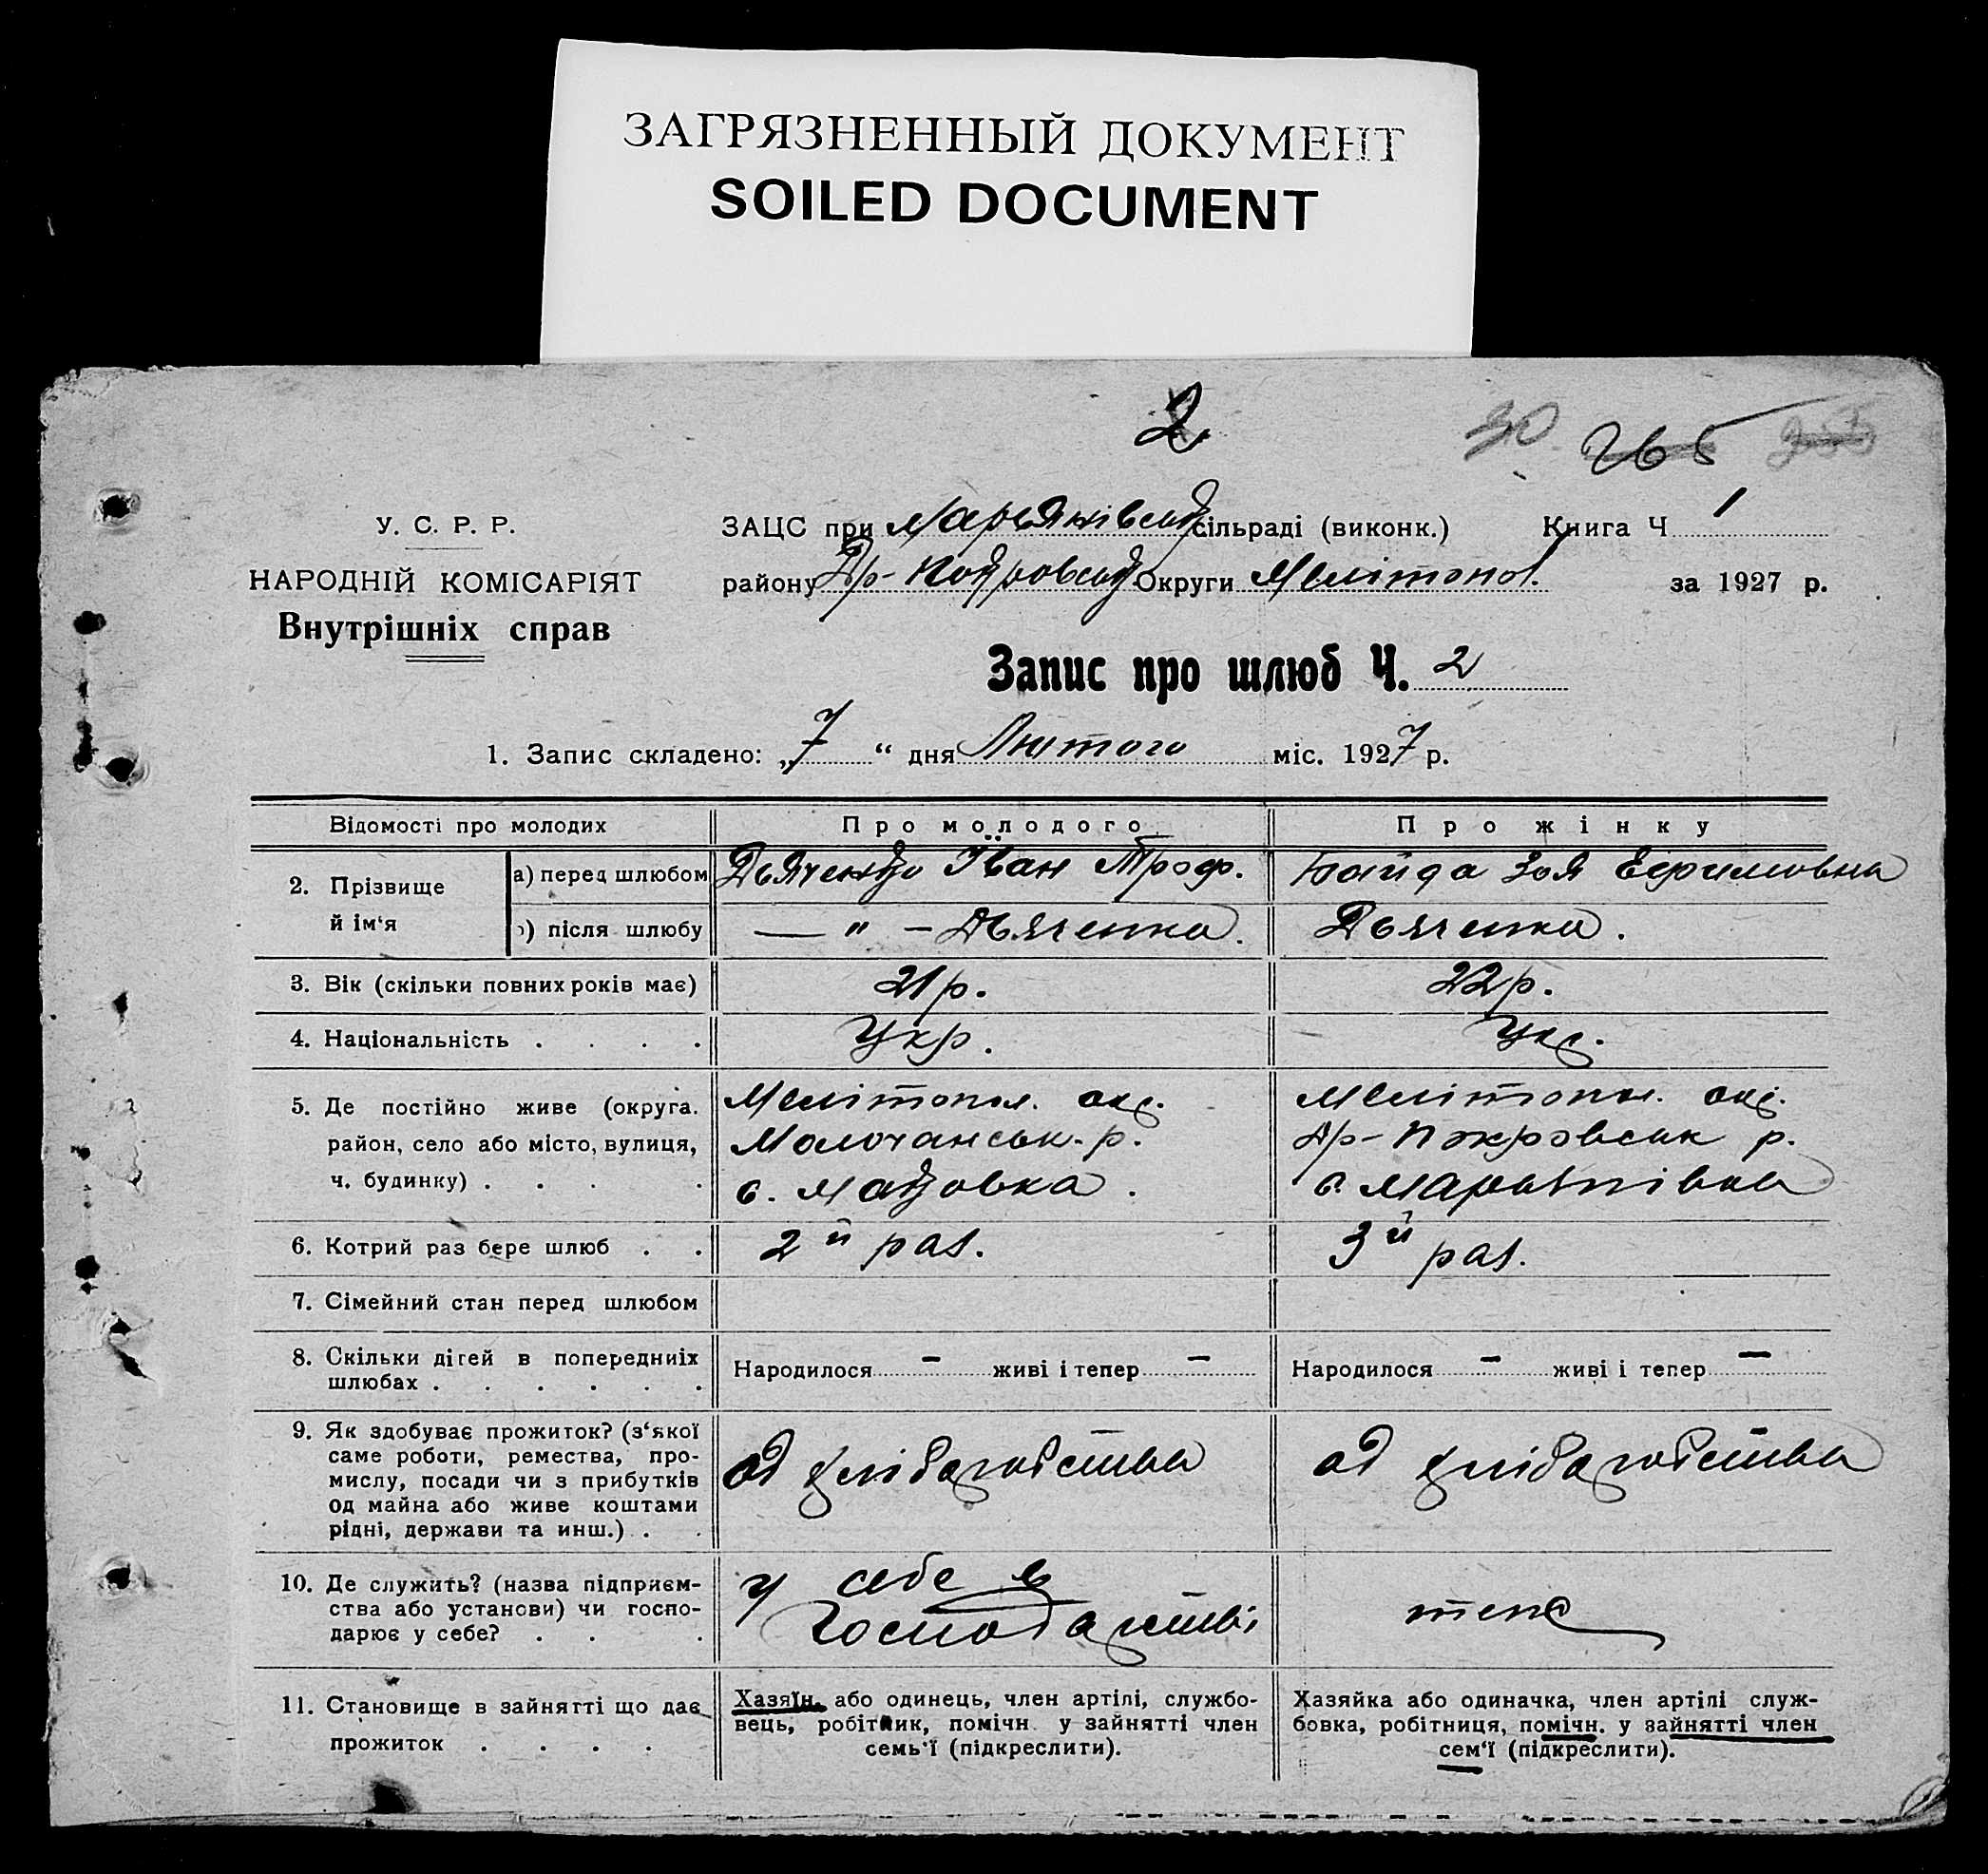 ЗАГРЯЗНЕННЫЙ ДОКУМЕНТ
SOILED DOCUMENT
2
30 265
У. С. Р. Р.
НАРОДНІЙ КОМІСАРІЯТ
Внутрішніх справ
ЗАЦС при Марьянівськ сільраді (виконк.) Книга Ч 1
району Др-Покровськ Округи Мелітопол. за 1927 р.
Запис про шлюб Ч. 2
1. Запис складено: „7“ дня Лютого міс. 1927 р.
Відомості про молодих Про молодого Про жінку
2. Прізвище й ім‘я а) перед шлюбом Дьяченко Іван Троф. Байда Зоя Ефимовна
) після шлюбу — " – Дьяченко. Дьяченко.
3. Вік (скільки повних років має) 21 р. 22 р.
4. Національність . . . . Укр. Укр.
5. Де постійно живе (округа. Мелітопол. окр. Мелітопол. окр.
район, село або місто, вулиця, Молочанськ. р. Др-Покровськ р.
ч. будинку) . . . . с. с. Марьянівка
6. Котрий раз бере шлюб . . 2й раз. 3й раз.
7. Сімейний стан перед шлюбом
8. Скільки дітей в попередниіх Народилося – живі і тепер – Народилося – живі і тепер –
шлюбах . . . . . .
9. Як здобуває прожиток? (з‘якої
саме роботи, ремества, про-
мислу, посади чи з прибутків од хліборобства од хліборобства
од майна або живе коштами
рідні, держави та инш.) . .
10. Де служить? (назва підприєм- у себе в
ства або установи) чи госпо- господарстві теж
дарює у себе? . . .
11. Становище в зайнятті що дає Хазяїн, або одинець, член артілі, службо- Хазяйка або одиначка, член артілі служ-
прожиток . . . . вець, робітник, помічн. у зайнятті член бовка, робітниця, помічн. у зайнятті член
семь‘ї (підкреслити). сем‘ї (підкреслити).